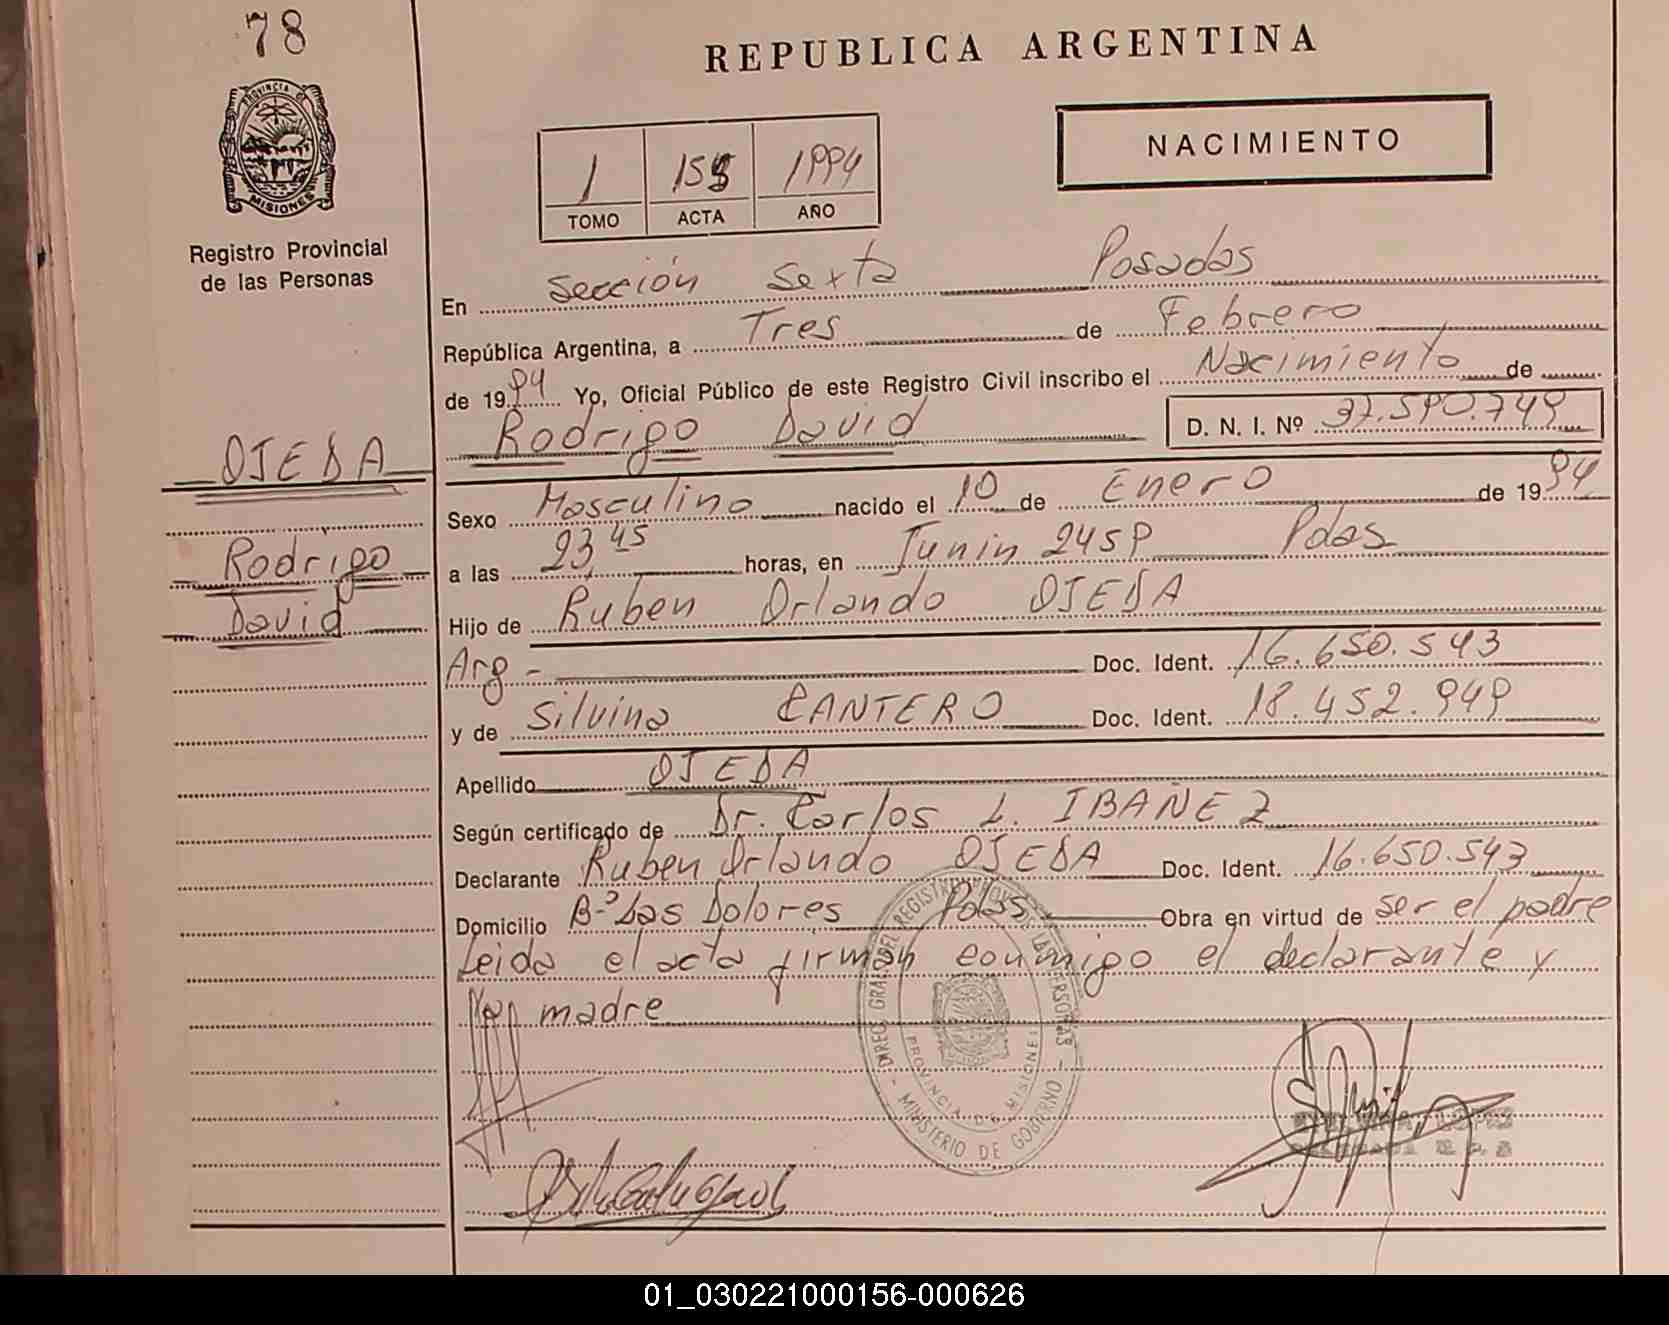 78
REPUBLICA ARGENTINA
NACIMIENTO
1 155 1994
TOMO ACTA AÑO
PROVINCIA DE MISIONES
Registro Provincial
de las Personas
En Sección Sexta Posadas
República Argentina, a Tres de Febrero
de 1994 Yo, Oficial Público de este Registro Civil inscribo el Nacimiento de
Rodrigo David D. N. I. Nº 37.590.749
OJEDA
Rodrigo
David
Sexo Masculino nacido el 10 de Enero de 1994
a las 23,45 horas, en Junin 2459 Pdas
Hijo de Ruben Orlando OJEDA
Arg - Doc. Ident. 16.650.543
y de Silvina CANTERO Doc. Ident. 18.452.949
Apellido OJEDA
Según certificado de Dr. Carlos L. IBAÑEZ
Declarante Ruben Orlando OJEDA Doc. Ident. 16.650.543
Domicilio Bº Las Dolores Pdas Obra en virtud de ser el padre
Leida el acta firman conmigo el declarante y
madre
DIREC. GRAL. DEL REGISTRO PROV. DE LAS PERSONAS - MINISTERIO DE GOBIERNO -
PROVINCIA DE MISIONES
LOPEZ
01_030221000156-000626